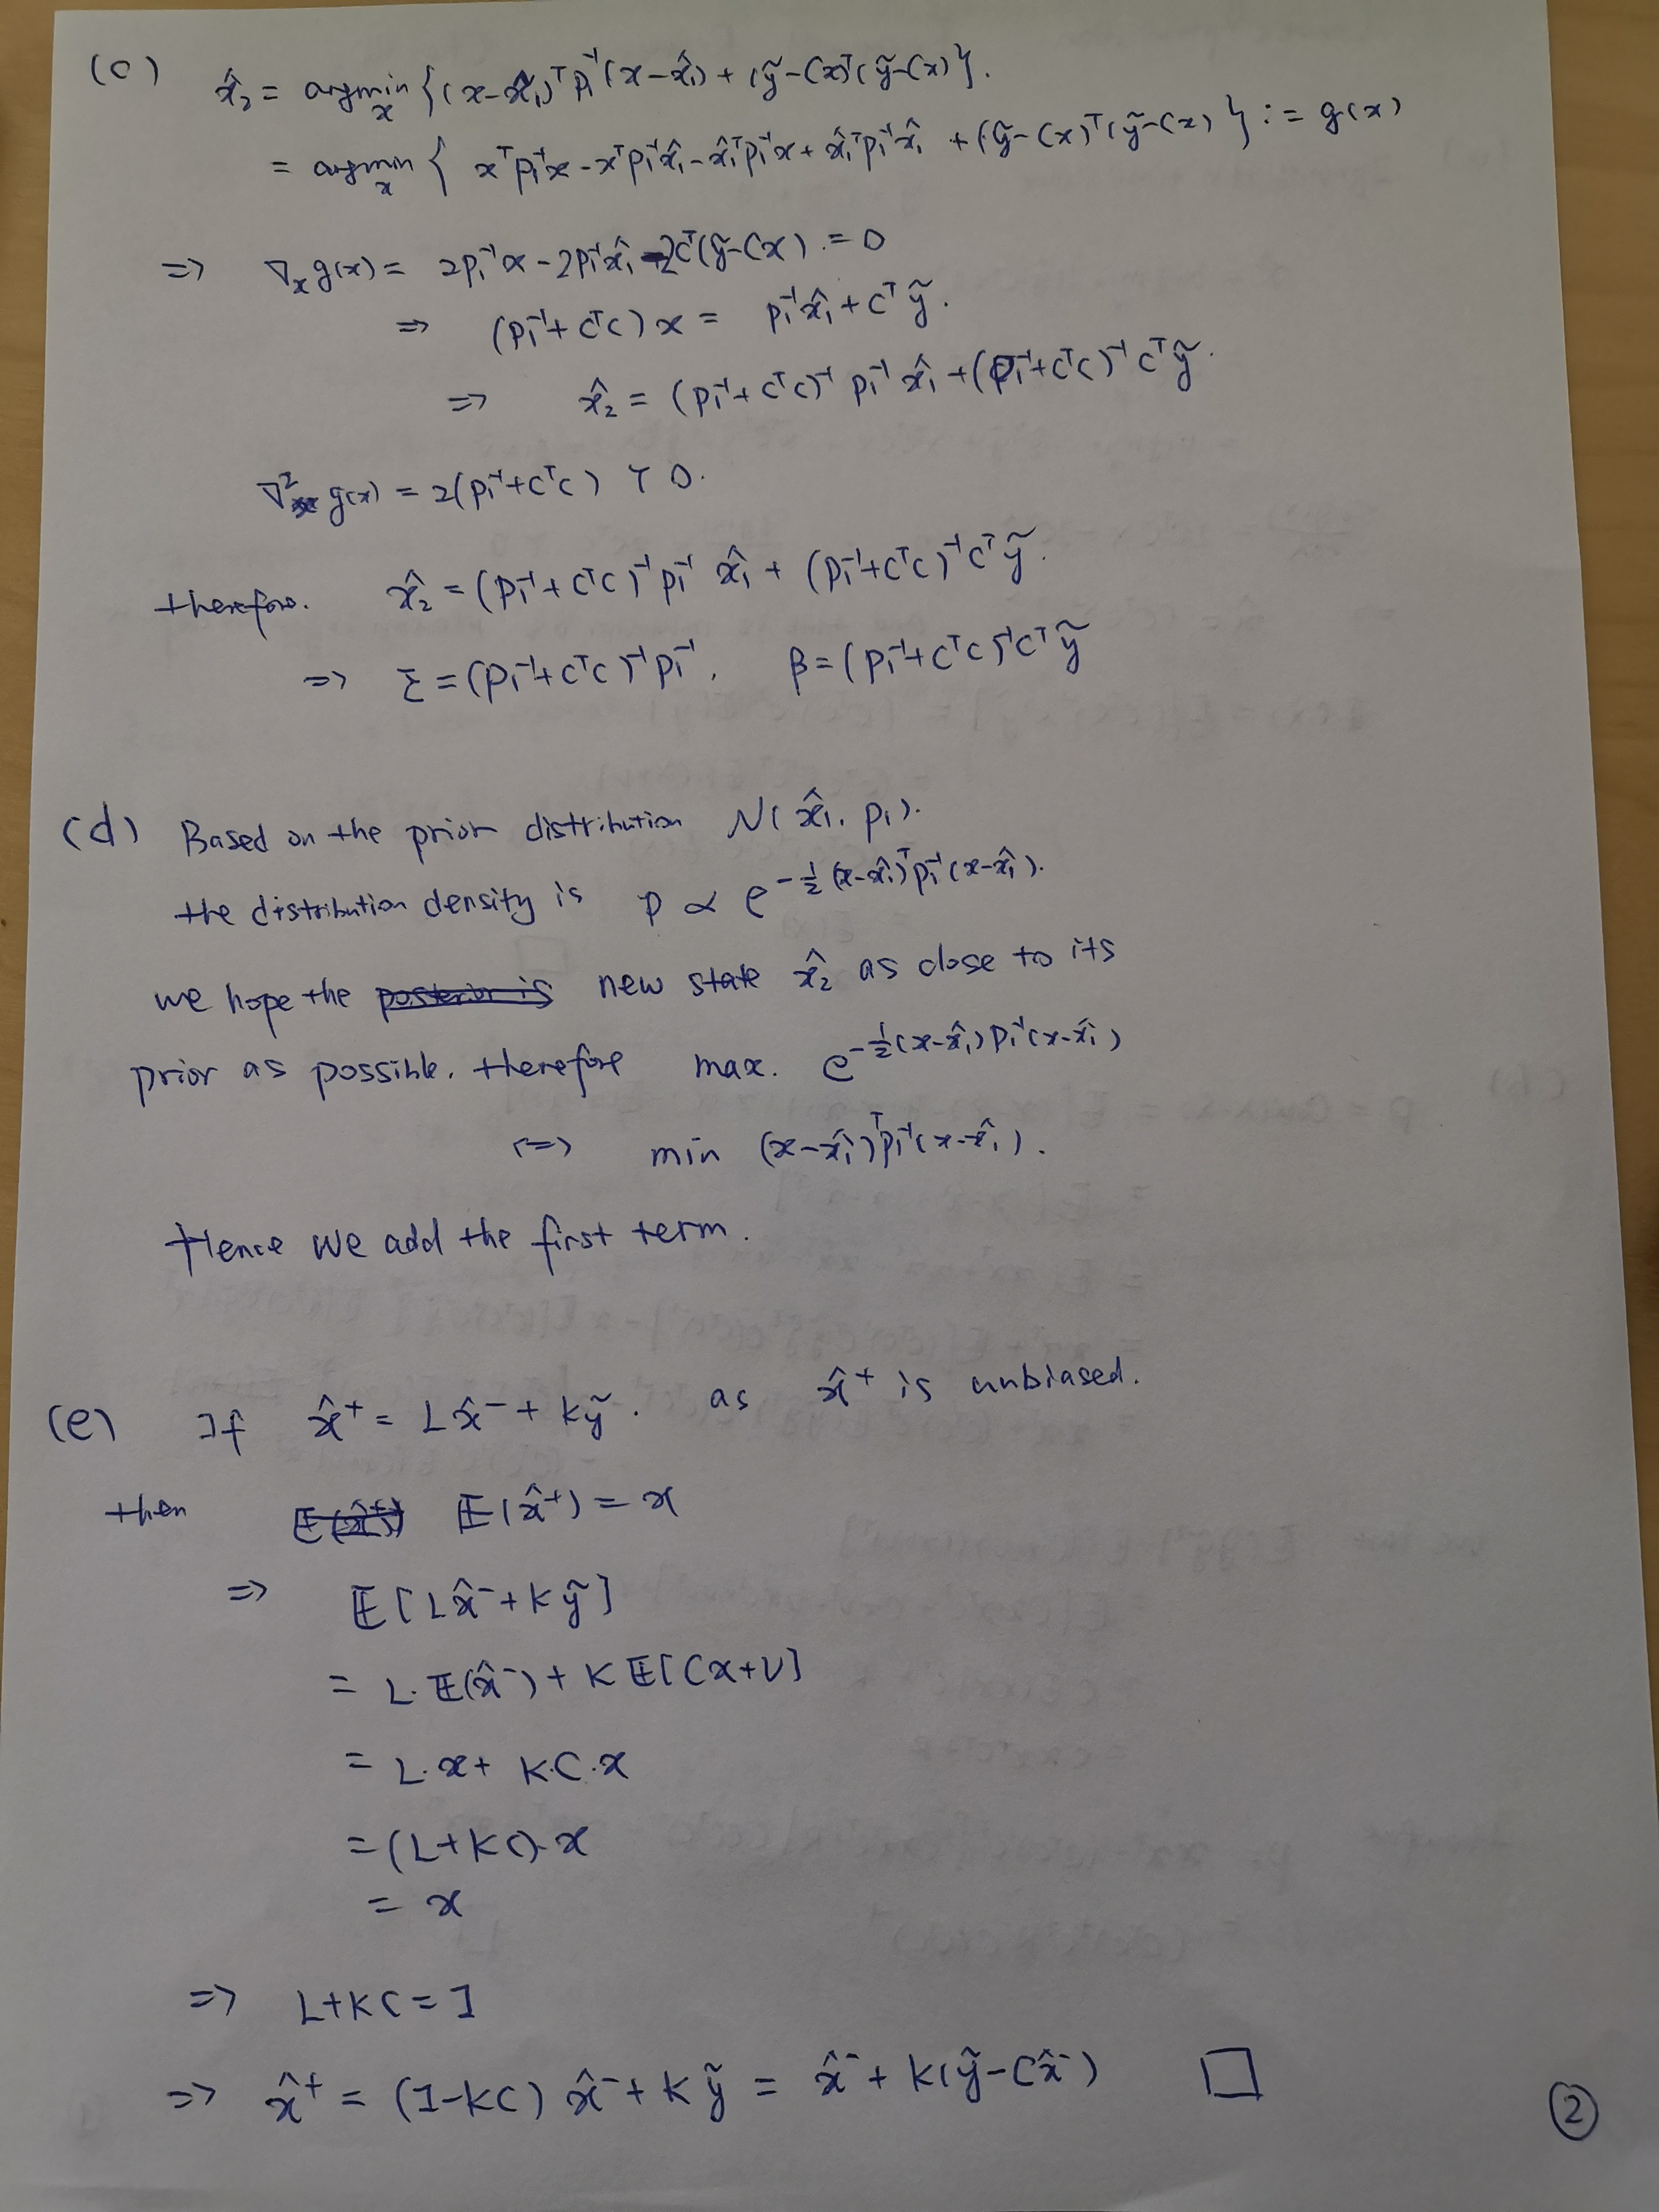 (c) x̂₂ = argmin_x {(x-x̂₁)ᵀP₁⁻¹(x-x̂₁) + (ỹ-Cx)ᵀ(ỹ-Cx)}.
= argmin_x { xᵀP₁⁻¹x - xᵀP₁⁻¹x̂₁ - x̂₁ᵀP₁⁻¹x + x̂₁ᵀP₁⁻¹x̂₁ + (ỹ-Cx)ᵀ(ỹ-Cx) } := g(x)
=> ∇ₓg(x) = 2P₁⁻¹x - 2P₁⁻¹x̂₁ - 2Cᵀ(ỹ-Cx) = 0
=> (P₁⁻¹+CᵀC)x = P₁⁻¹x̂₁ + Cᵀỹ.
=> x̂₂ = (P₁⁻¹+CᵀC)⁻¹P₁⁻¹x̂₁ + (P₁⁻¹+CᵀC)⁻¹Cᵀỹ.
∇²g(x) = 2(P₁⁻¹+CᵀC) ≻ 0.
therefore. x̂₂ = (P₁⁻¹+CᵀC)⁻¹P₁⁻¹ x̂₁ + (P₁⁻¹+CᵀC)⁻¹Cᵀỹ.
=> Σ = (P₁⁻¹+CᵀC)⁻¹P₁⁻¹, β = (P₁⁻¹+CᵀC)⁻¹Cᵀỹ
(d) Based on the prior distribution N(x̂₁, P₁).
the distribution density is p ∝ e^{-½(x-x̂₁)ᵀP₁⁻¹(x-x̂₁)}.
we hope the posterior is new state x̂₂ as close to its
prior as possible. therefore max. e^{-½(x-x̂₁)P₁⁻¹(x-x̂₁)}
<=> min (x-x̂₁)ᵀP₁⁻¹(x-x̂₁).
Hence we add the first term.
(e) If x̂⁺ = Lx̂⁻ + Kỹ. as x̂⁺ is unbiased.
then E(x̂⁺) E(x̂⁺) = x
=> E[Lx̂⁻ + Kỹ]
= L·E(x̂⁻) + K E[Cx+V]
= L·x + K·C·x
= (L+KC)·x
= x
=> L+KC = I
=> x̂⁺ = (I-KC) x̂⁻ + Kỹ = x̂⁻ + K(ỹ-Cx̂⁻) □
②